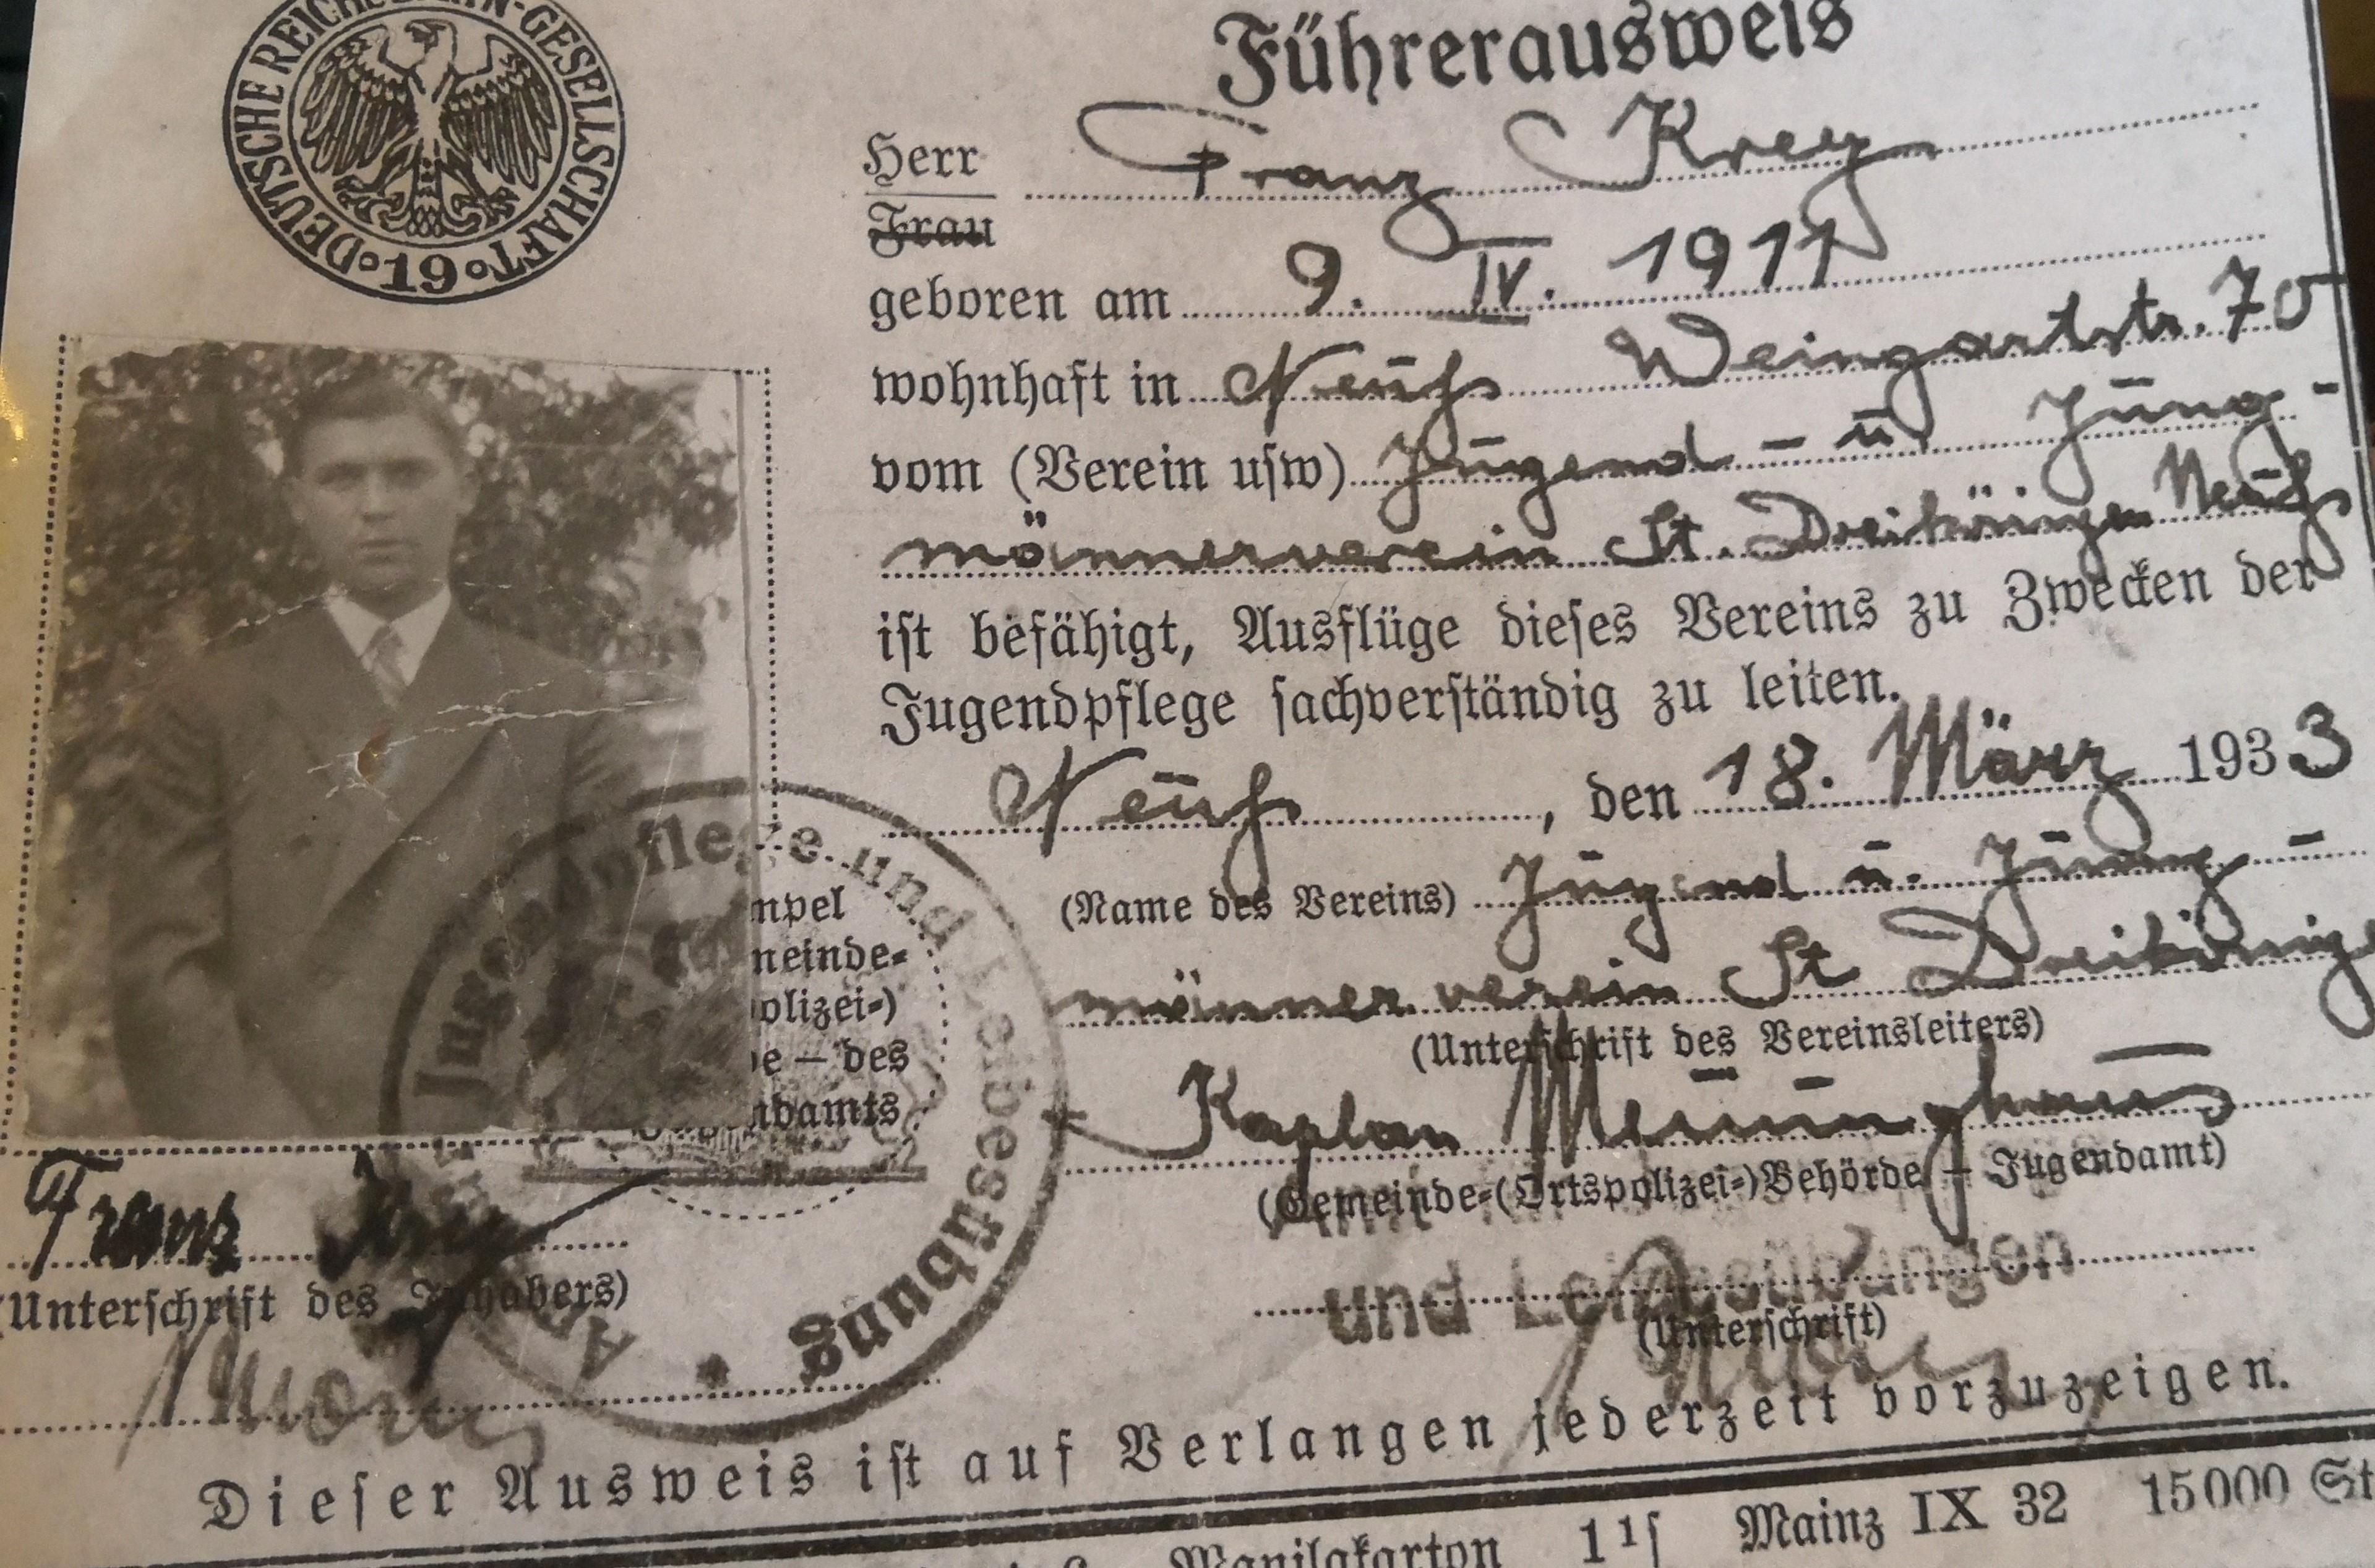 DEUTSCHE REICHSBAHN-GESELLSCHAFT
19
Führerausweis
Herr Franz Krey
Frau
geboren am 9. IV. 1911
wohnhaft in Neuß Weingartstr. 70
vom (Verein usw) Jugend- u. Jung-
männerverein St. Dreikönigen Neuß
ist befähigt, Ausflüge dieses Vereins zu Zwecken der
Jugendpflege sachverständig zu leiten.
Neuß, den 18. März 1933
(Name des Vereins) Jugend u. Jung-
männerverein St Dreikönige
(Unterschrift des Vereinsleiters)
Kaplan
(Gemeinde-(Ortspolizei-)Behörde – Jugendamt)
und Leibesübungen
(Unterschrift)
mpel
meinde-
olizei-)
e – des
ndamts
Jugendpflege und Leibesübung
Franz Krey
(Unterschrift des Inhabers)
Dieser Ausweis ist auf Verlangen jederzeit vorzuzeigen.
Manilakarton 1 1f Mainz IX 32 15000 St